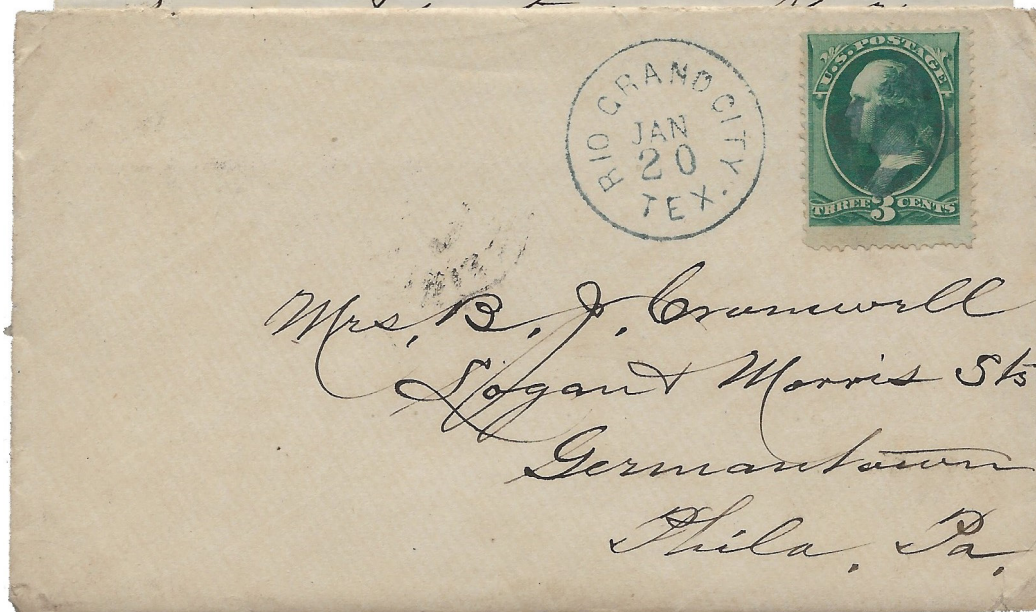 RIO GRAND CITY
JAN
20
TEX.
U.S. POSTAGE
THREE 3 CENTS
Mrs. B. J. Cromwell
Logan & Morris Sts
Germantown
Phila, Pa,